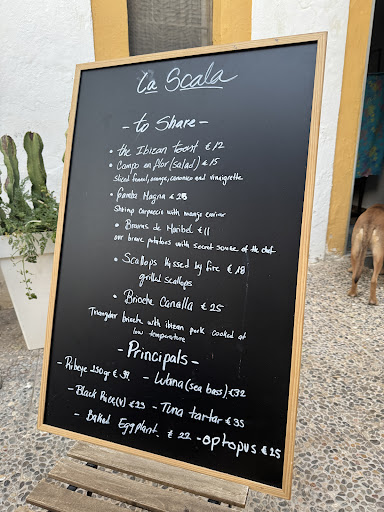 La Scala
- to Share -
• the Ibizan toast € 12
• Campo en flor (salad) € 15
Sliced funnel, orange, canonico and vinaigrette
• Gamba Magna €
Shrimp carpaccio with mango caviar
• Bravas de Maribel € 11
our brave potatoes with secret sauce of the chef
• Scallops Kissed by fire € 18
grilled scallops
• Brioche Canalla € 25
Triangular brioche with ibizan pork cooked at
low temperature
- Principals -
- Ribeye 250gr € - (sea bass) € 32
- Black Rice (v) € 23 - Tuna tartar € 35
- Baked Eggplant. € 22 - optopus € 25